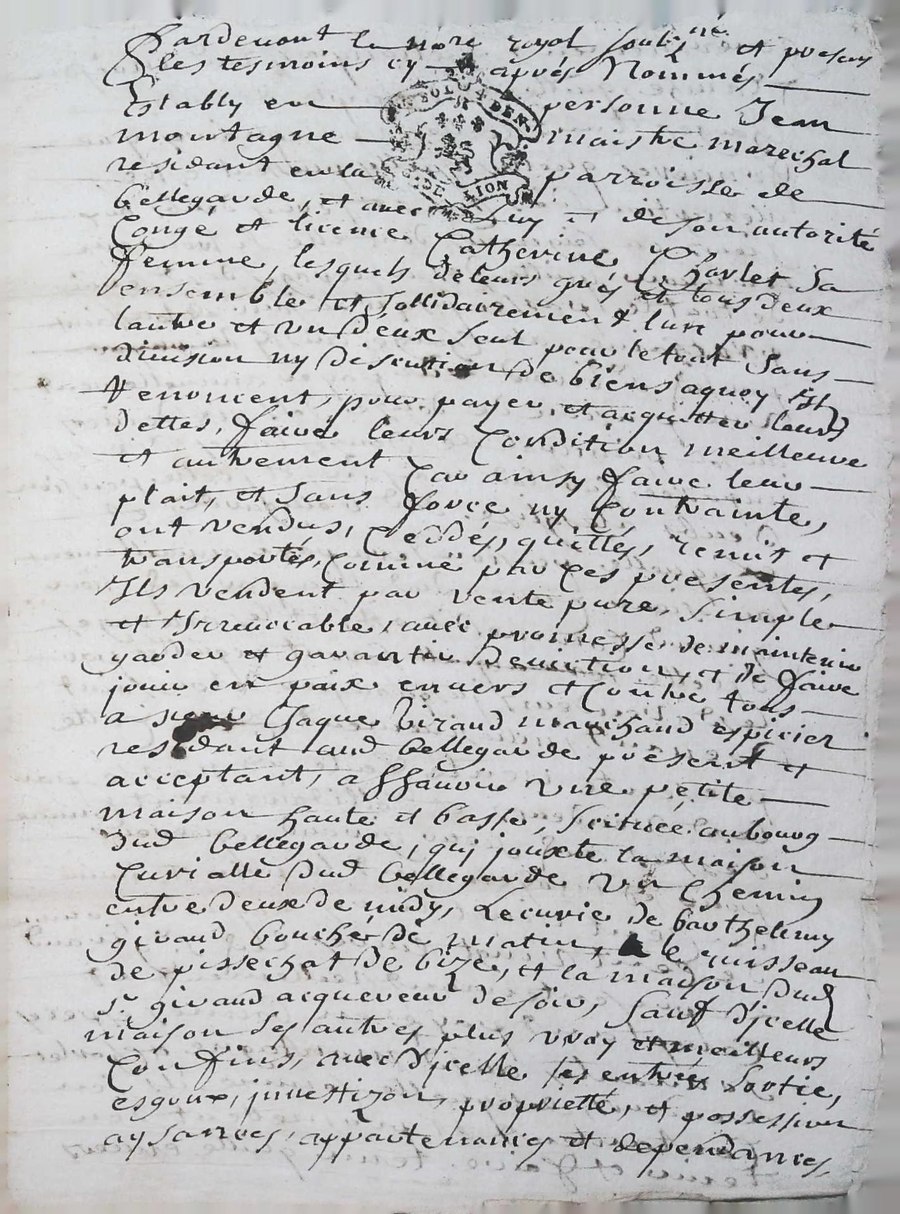 Pardevant le no.re royal soubz.né et presens
les tesmoins cy aprés Nommés
Estably en personne Jean
montagne maistre marechal
residant en la parroisse de
bellegarde, et avec Luy et de son autorité
Congé et licence Catherine Charlet sa
femme, lesquels de leurs grés et tous deux
ensemble et sollidairement lun pour
lautre et un deux seul pour le tout sans
division ny discution de biens aquoy ils
renoncent, pour payer et acquitter leurs
dettes, faire leurs Condition meilleure
et autrement Car ainsy faire leur
plait, et sans force ny Contrainte,
ont vendus, Ceddés, quittés, remit et
transportés, Comme par Ces presentes,
Ils vendent par vente pure, simple
et Irrevocable, avec promesse de maintenir
garder et garantir Deviction, et de faire
jouir en paix envers et Contre tous
a sieur Jaque Giraud marchand espicier
residant aud bellegarde présent et
acceptant, a sçavoir une petite
maison haute et basse, scituée, au bourg
dud bellegarde, qui jouxte la maison
Curialle dud bellegarde un Chemin
entre deux de midy, Lecurie de barthelemy
giraud bouché de matin, le ruisseau
de pissechat de bize, et la maison dud
Sr giraud acquereur de soir, Sauf d'jcelle
maison ses autres plus vray et meilleurs
Confins, avec d'jcelle ses entrées sortie,
esgoux, investizon, proprietté, et possession
aysances, appartenances et dependances,
BOL DEN
LION